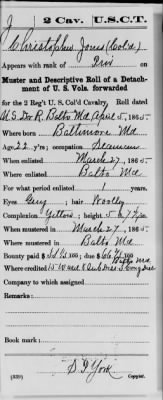 J | 2 Cav. | U.S.C.T.
Christopher Jones (Cold.)
Appears with rank of Priv on
Muster and Descriptive Roll of a Detachment of U. S. Vols. forwarded
for the 2 Reg't U.S. Col'd Cavalry. Roll dated
Balto Md April 5, 1865.
Where born Baltimore Md
Age 22 y'rs; occupation Seaman
When enlisted March 27, 1865.
Where enlisted Balto Md
For what period enlisted 1 years.
Eyes Grey; hair Woolley
Complexion Yellow; height 5 ft. 7 in.
When mustered in March 27, 1865.
Where mustered in Balto Md
Bounty paid $ 100; due $ 100
Where credited 15 Ward
Company to which assigned
Remarks:
Book mark:
S. P. York
(339) Copyist.